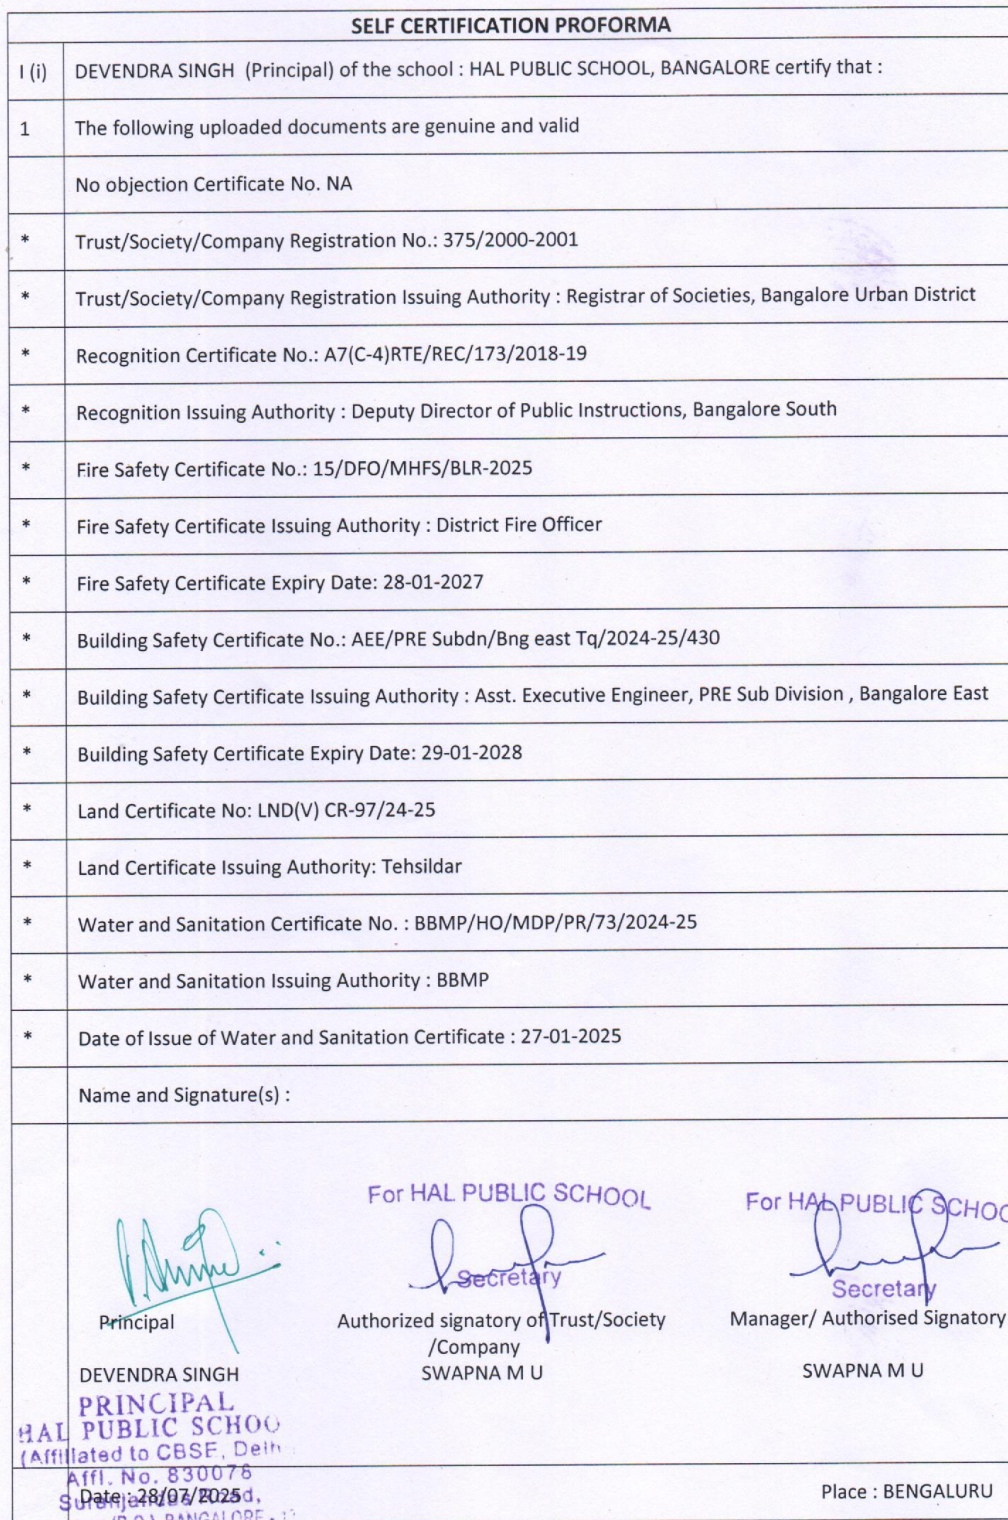 SELF CERTIFICATION PROFORMA
I (i) DEVENDRA SINGH (Principal) of the school : HAL PUBLIC SCHOOL, BANGALORE certify that :
1 The following uploaded documents are genuine and valid
No objection Certificate No. NA
* Trust/Society/Company Registration No.: 375/2000-2001
* Trust/Society/Company Registration Issuing Authority : Registrar of Societies, Bangalore Urban District
* Recognition Certificate No.: A7(C-4)RTE/REC/173/2018-19
* Recognition Issuing Authority : Deputy Director of Public Instructions, Bangalore South
* Fire Safety Certificate No.: 15/DFO/MHFS/BLR-2025
* Fire Safety Certificate Issuing Authority : District Fire Officer
* Fire Safety Certificate Expiry Date: 28-01-2027
* Building Safety Certificate No.: AEE/PRE Subdn/Bng east Tq/2024-25/430
* Building Safety Certificate Issuing Authority : Asst. Executive Engineer, PRE Sub Division , Bangalore East
* Building Safety Certificate Expiry Date: 29-01-2028
* Land Certificate No: LND(V) CR-97/24-25
* Land Certificate Issuing Authority: Tehsildar
* Water and Sanitation Certificate No. : BBMP/HO/MDP/PR/73/2024-25
* Water and Sanitation Issuing Authority : BBMP
* Date of Issue of Water and Sanitation Certificate : 27-01-2025
Name and Signature(s) :
For HAL PUBLIC SCHOOL
Secretary
For HAL PUBLIC SCHOO
Secretary
Principal
Authorized signatory of Trust/Society
/Company
Manager/ Authorised Signatory
DEVENDRA SINGH
SWAPNA M U
SWAPNA M U
PRINCIPAL
HAL PUBLIC SCHOO
(Affiliated to CBSE, Delh
Affl. No. 830078
Date : 28/07/2025
Place : BENGALURU
BANGALORE